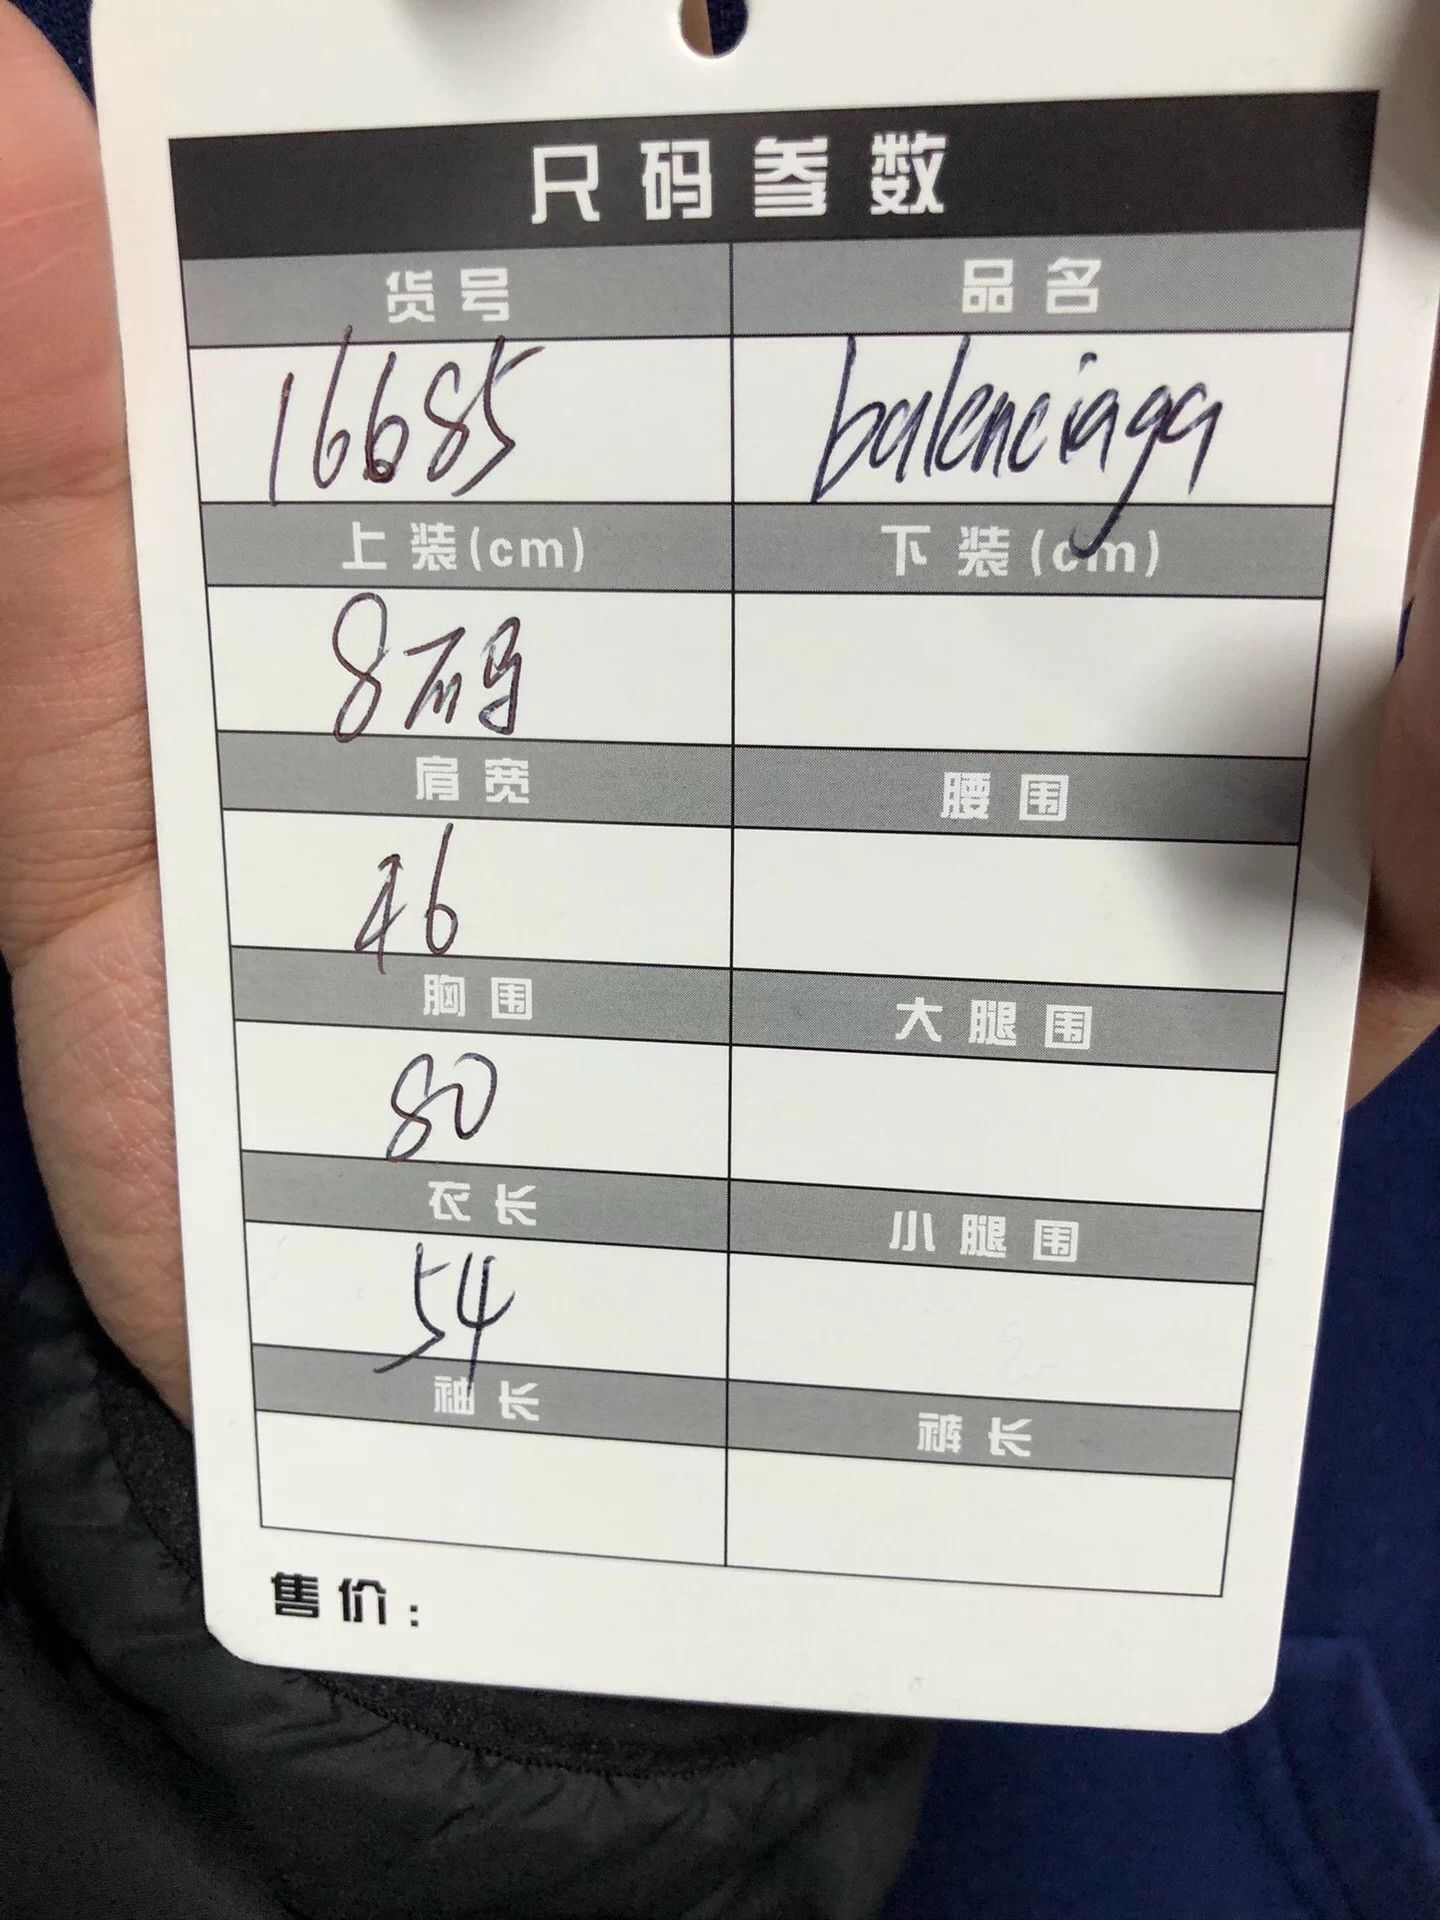 尺码参数
货号 品名
16685 balenciaga
上装(cm) 下装(cm)
8码
肩宽 腰围
46
胸围 大腿围
80
衣长 小腿围
54
袖长 裤长
售价: